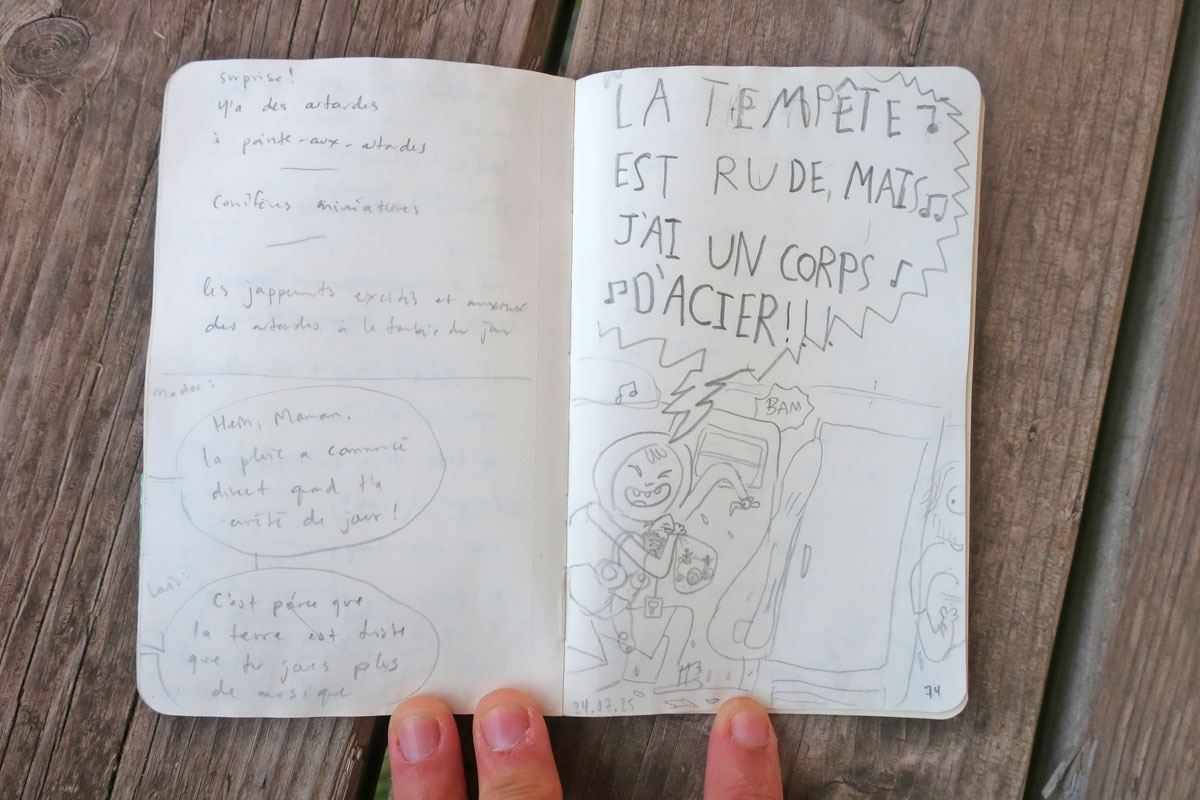 surprise!
Y'a des outardes
à pointe-aux-outardes
conifères miniatures
les jappements excités et anxieux
des outardes à la tombée du jour
Mado:
Hein, Maman.
la pluie a commencé
direct quand t'a
arrêté de jouer!
C'est parce que
la terre est triste
que tu joues plus
de musique
LA TEMPÊTE
EST RUDE, MAIS
J'AI UN CORPS
D'ACIER!!!
BAM
24.07.25
74